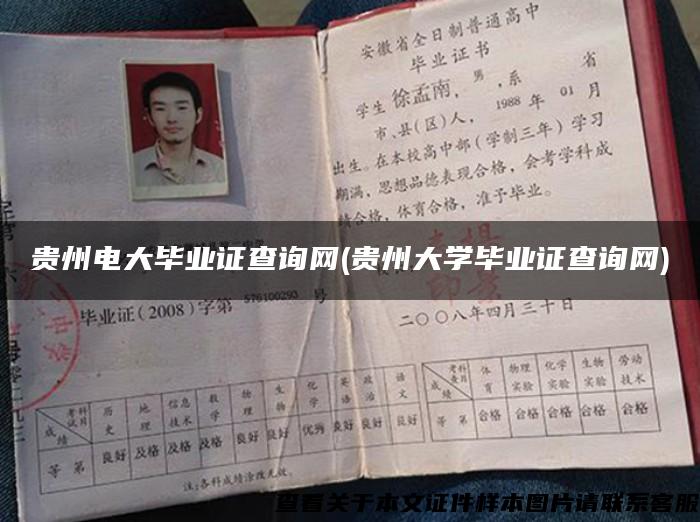 安徽省全日制普通高中
毕业证书
学生徐孟南,男,系 省
市、县(区)人,1988年01月
出生。在本校高中部(学制三年)学习
期满,思想品德表现合格,会考学科成
绩合格,体育合格,准予毕业。
贵州电大毕业证查询网(贵州大学毕业证查询网)
毕业证(2008)字第576100293号
二〇〇八年四月三十日
考试科目 成绩 历史 地理 信息技术 数学 物理 生物 化学 英语 政治 语文
等第 良好 及格 及格 及格 良好 良好 优秀 良好 良好 良好
注:各科成绩涂改无效。
考查科目 成绩 体育 物理实验 化学实验 生物实验 劳动技术
等第 合格 合格 合格 合格 合格
查看关于本文证件样本图片请联系客服